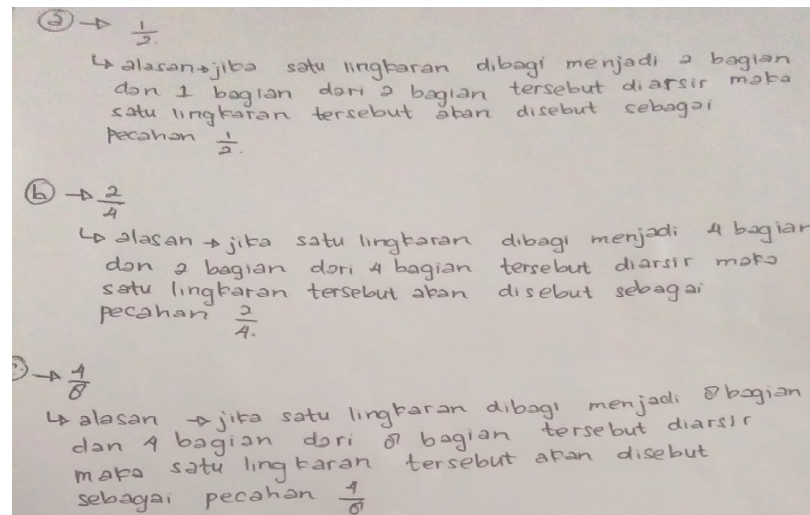 (a) → 1/2.
↳ alasan → jika satu lingkaran dibagi menjadi 2 bagian
dan 1 bagian dari 2 bagian tersebut diarsir maka
satu lingkaran tersebut akan disebut sebagai
pecahan 1/2.
(b) → 2/4
↳ alasan → jika satu lingkaran dibagi menjadi 4 bagian
dan 2 bagian dari 4 bagian tersebut diarsir maka
satu lingkaran tersebut akan disebut sebagai
pecahan 2/4.
→ 4/8
↳ alasan → jika satu lingkaran dibagi menjadi 8 bagian
dan 4 bagian dari 8 bagian tersebut diarsir
maka satu lingkaran tersebut akan disebut
sebagai pecahan 4/8